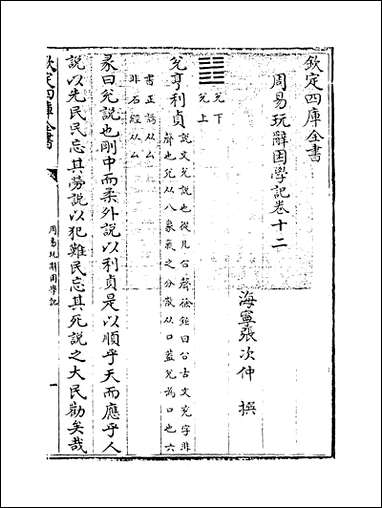 欽定四庫全書
周易玩辭困學記卷十二
海寧張次仲 撰
兌下
兌上
兌亨利貞
說文兌說也從几㕣聲徐鉉曰㕣古文兖字非
聲也兌从八象氣之分散从口蓋兌為口也六
書正譌从厶
非石經从厶
彖曰兌說也剛中而柔外說以利貞是以順乎天而應乎人
說以先民民忘其勞說以犯難民忘其死說之大民勸矣哉
欽定四庫全書
周易玩辭困學記
一